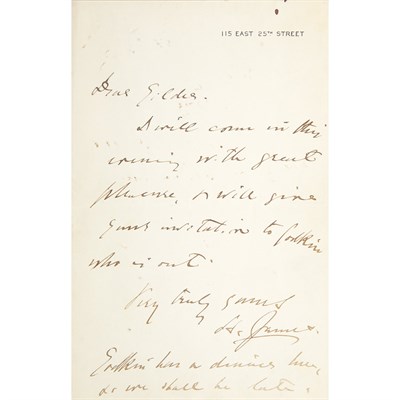 115 EAST 25TH STREET
Dear Gilder.
I will come in this
evening with great
pleasure, & will give
your invitation to Godkin
who is out.
Very truly yours
H. James.
Godkin has a dinner here
so we shall be late.